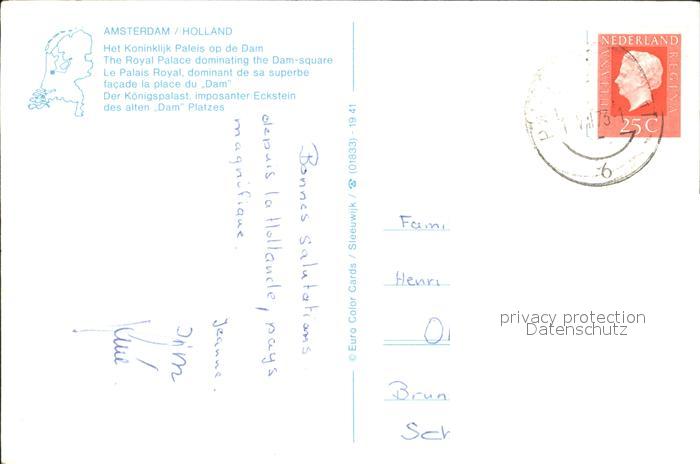 AMSTERDAM / HOLLAND
Het Koninklijk Paleis op de Dam
The Royal Palace dominating the Dam-square
Le Palais Royal, dominant de sa superbe
façade la place du „Dam"
Der Königspalast, imposanter Eckstein
des alten „Dam" Platzes
Bonnes salutations
depuis la Hollande, pays
magnifique.
Jeanne.
© Euro Color Cards / Sleeuwijk / ☎ (01833) - 19 41
NEDERLAND
JULIANA REGINA
25C
6
Fami
Henri
Brun
Sch
privacy protection
Datenschutz